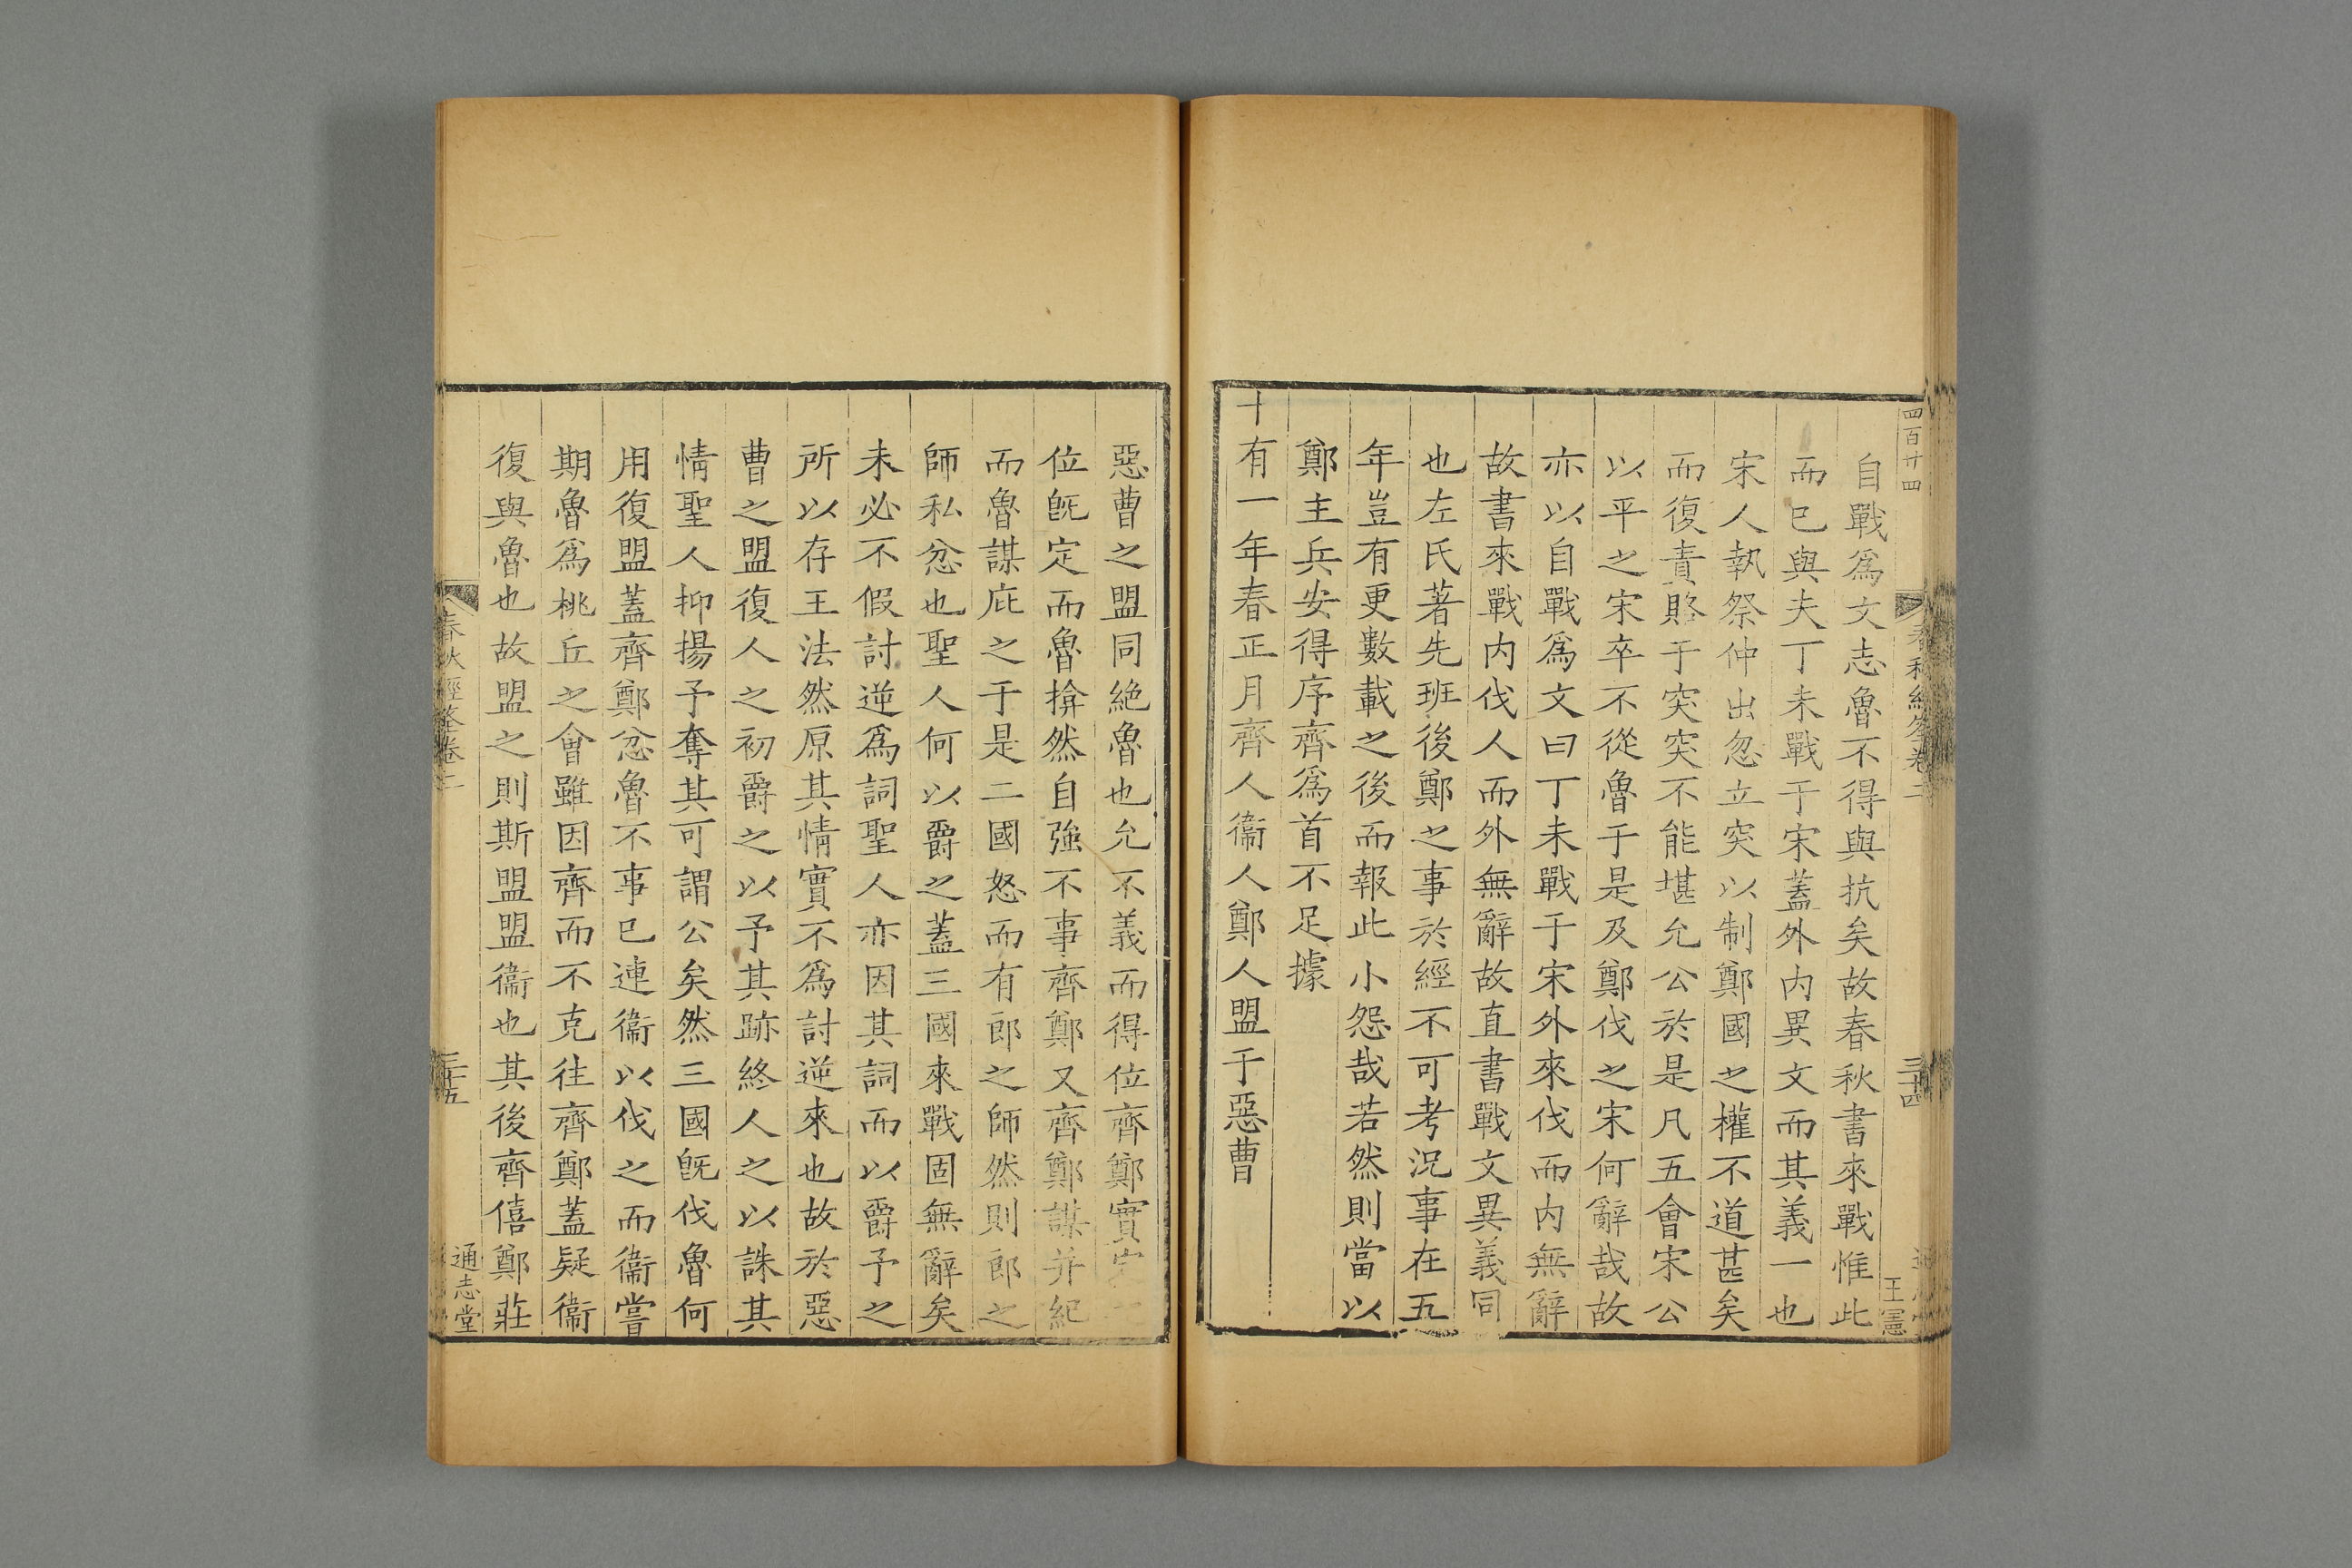 四百廿四
自戰爲文志魯不得與抗矣故春秋書來戰惟此
而已與夫丁未戰于宋蓋外内異文而其義一也
宋人執祭仲出忽立突以制鄭國之權不道甚矣
而復責賂于突突不能堪允公於是凡五會宋公
以平之宋卒不從魯于是及鄭伐之宋何辭哉故
亦以自戰爲文曰丁未戰于宋外來伐而内無辭
故書來戰内伐人而外無辭故直書戰文異義同
也左氏著先班後鄭之事於經不可考況事在五
年豈有更數載之後而報此小怨哉若然則當以
鄭主兵安得序齊爲首不足據
十有一年春正月齊人衞人鄭人盟于惡曹
春秋經筌卷二
三十四
王憲
惡曹之盟同絶魯也允不義而得位齊鄭實
位旣定而魯揜然自強不事齊鄭又齊鄭謀并紀
而魯謀庇之于是二國怒而有郎之師然則郎之
師私忿也聖人何以爵之蓋三國來戰固無辭矣
未必不假討逆爲詞聖人亦因其詞而以爵予之
所以存王法然原其情實不爲討逆來也故於惡
曹之盟復人之初爵之以予其跡終人之以誅其
情聖人抑揚予奪其可謂公矣然三國旣伐魯何
用復盟蓋齊鄭忿魯不事已連衞以伐之而衞嘗
期魯爲桃丘之會雖因齊而不克往齊鄭蓋疑衞
復與魯也故盟之則斯盟盟衞也其後齊僖鄭莊
春秋經筌卷二
三十五
通志堂